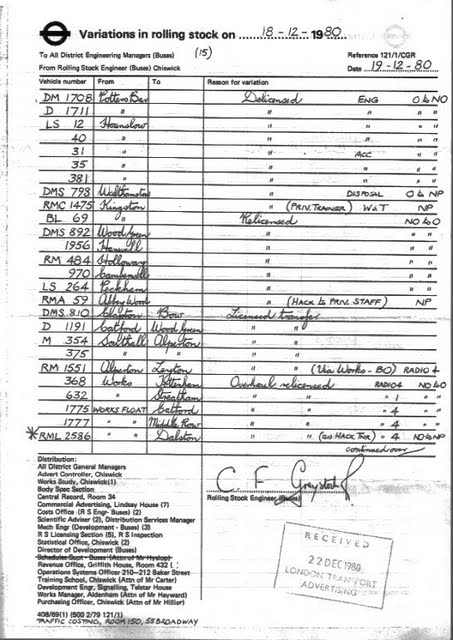 Variations in rolling stock on 18-12-1980
(15)
To All District Engineering Managers (Buses)
Reference 121/1/CGR
From Rolling Stock Engineer (Buses) Chiswick
Date 19-12-80
Vehicle number From To Reason for variation
DM 1708 Potters Bar Delicensed ENG O to NO
D 1711 " " " " "
LS 12 Hounslow " " " "
40 " " " " "
31 " " ACC " "
35 " " " " "
381 " " " " "
DMS 798 Walthamstow " DISPOSAL O to NP
RMC 1475 Kingston " (PRIV. TRAINER) W&T NP
BL 69 " Relicensed NO to O
DMS 892 Wood Green " " "
1956 Hanwell " " "
RM 484 Holloway " " "
970 Camberwell " " "
LS 264 Peckham " " "
RMA 59 Abbey Wood " (HACK to PRIV. STAFF) NP
DMS 810 Clapton Bow Licensed transfer
D 1191 Catford Wood Green " "
M 354 Southall Alperton " "
375 " " " "
RM 1551 Alperton Leyton " " (Via Works - BO) RADIO 4
368 Works Tottenham Overhaul relicensed RADIO 4 NO to O
632 " Streatham " " " 1 " "
1775 WORKS FLOAT Catford " " " 4 " "
1777 " " Middle Row " " " 4 " "
*RML 2586 " " Dalston " " (as HACK " 4 NO to NP
continued over
Distribution:
All District General Managers
Advert Controller, Chiswick
Works Study, Chiswick(1)
Body Spec Section
Central Record, Room 34
Commercial Advertising, Lindsay House (7)
Costs Office (R S Engr- Buses) (2)
Scientific Adviser (2), Distribution Services Manager
Mech Engr (Development - Buses) (3)
R S Licensing Section (5), R S Inspection
Statistical Office, Chiswick (2)
Director of Development (Buses)
Schedules Supt - Buses (Attn of Mr Hyslop)
Revenue Office, Griffith House, Room 432
Operations Systems Officer 210—212 Baker Street
Training School, Chiswick (Attn of Mr Carter)
Development Engr, Signalling, Telstar House
Works Manager, Aldenham (Attn of Mr Hayward)
Purchasing Officer, Chiswick (Attn of Mr Hillier)
408/69(1) (500 2/79 121/1)
TRAFFIC COSTING, ROOM 150, 55 BROADWAY
C F
Rolling Stock Engineer (Buses)
RECEIVED
22 DEC 1980
LONDON TRANSPORT
ADVERTISING